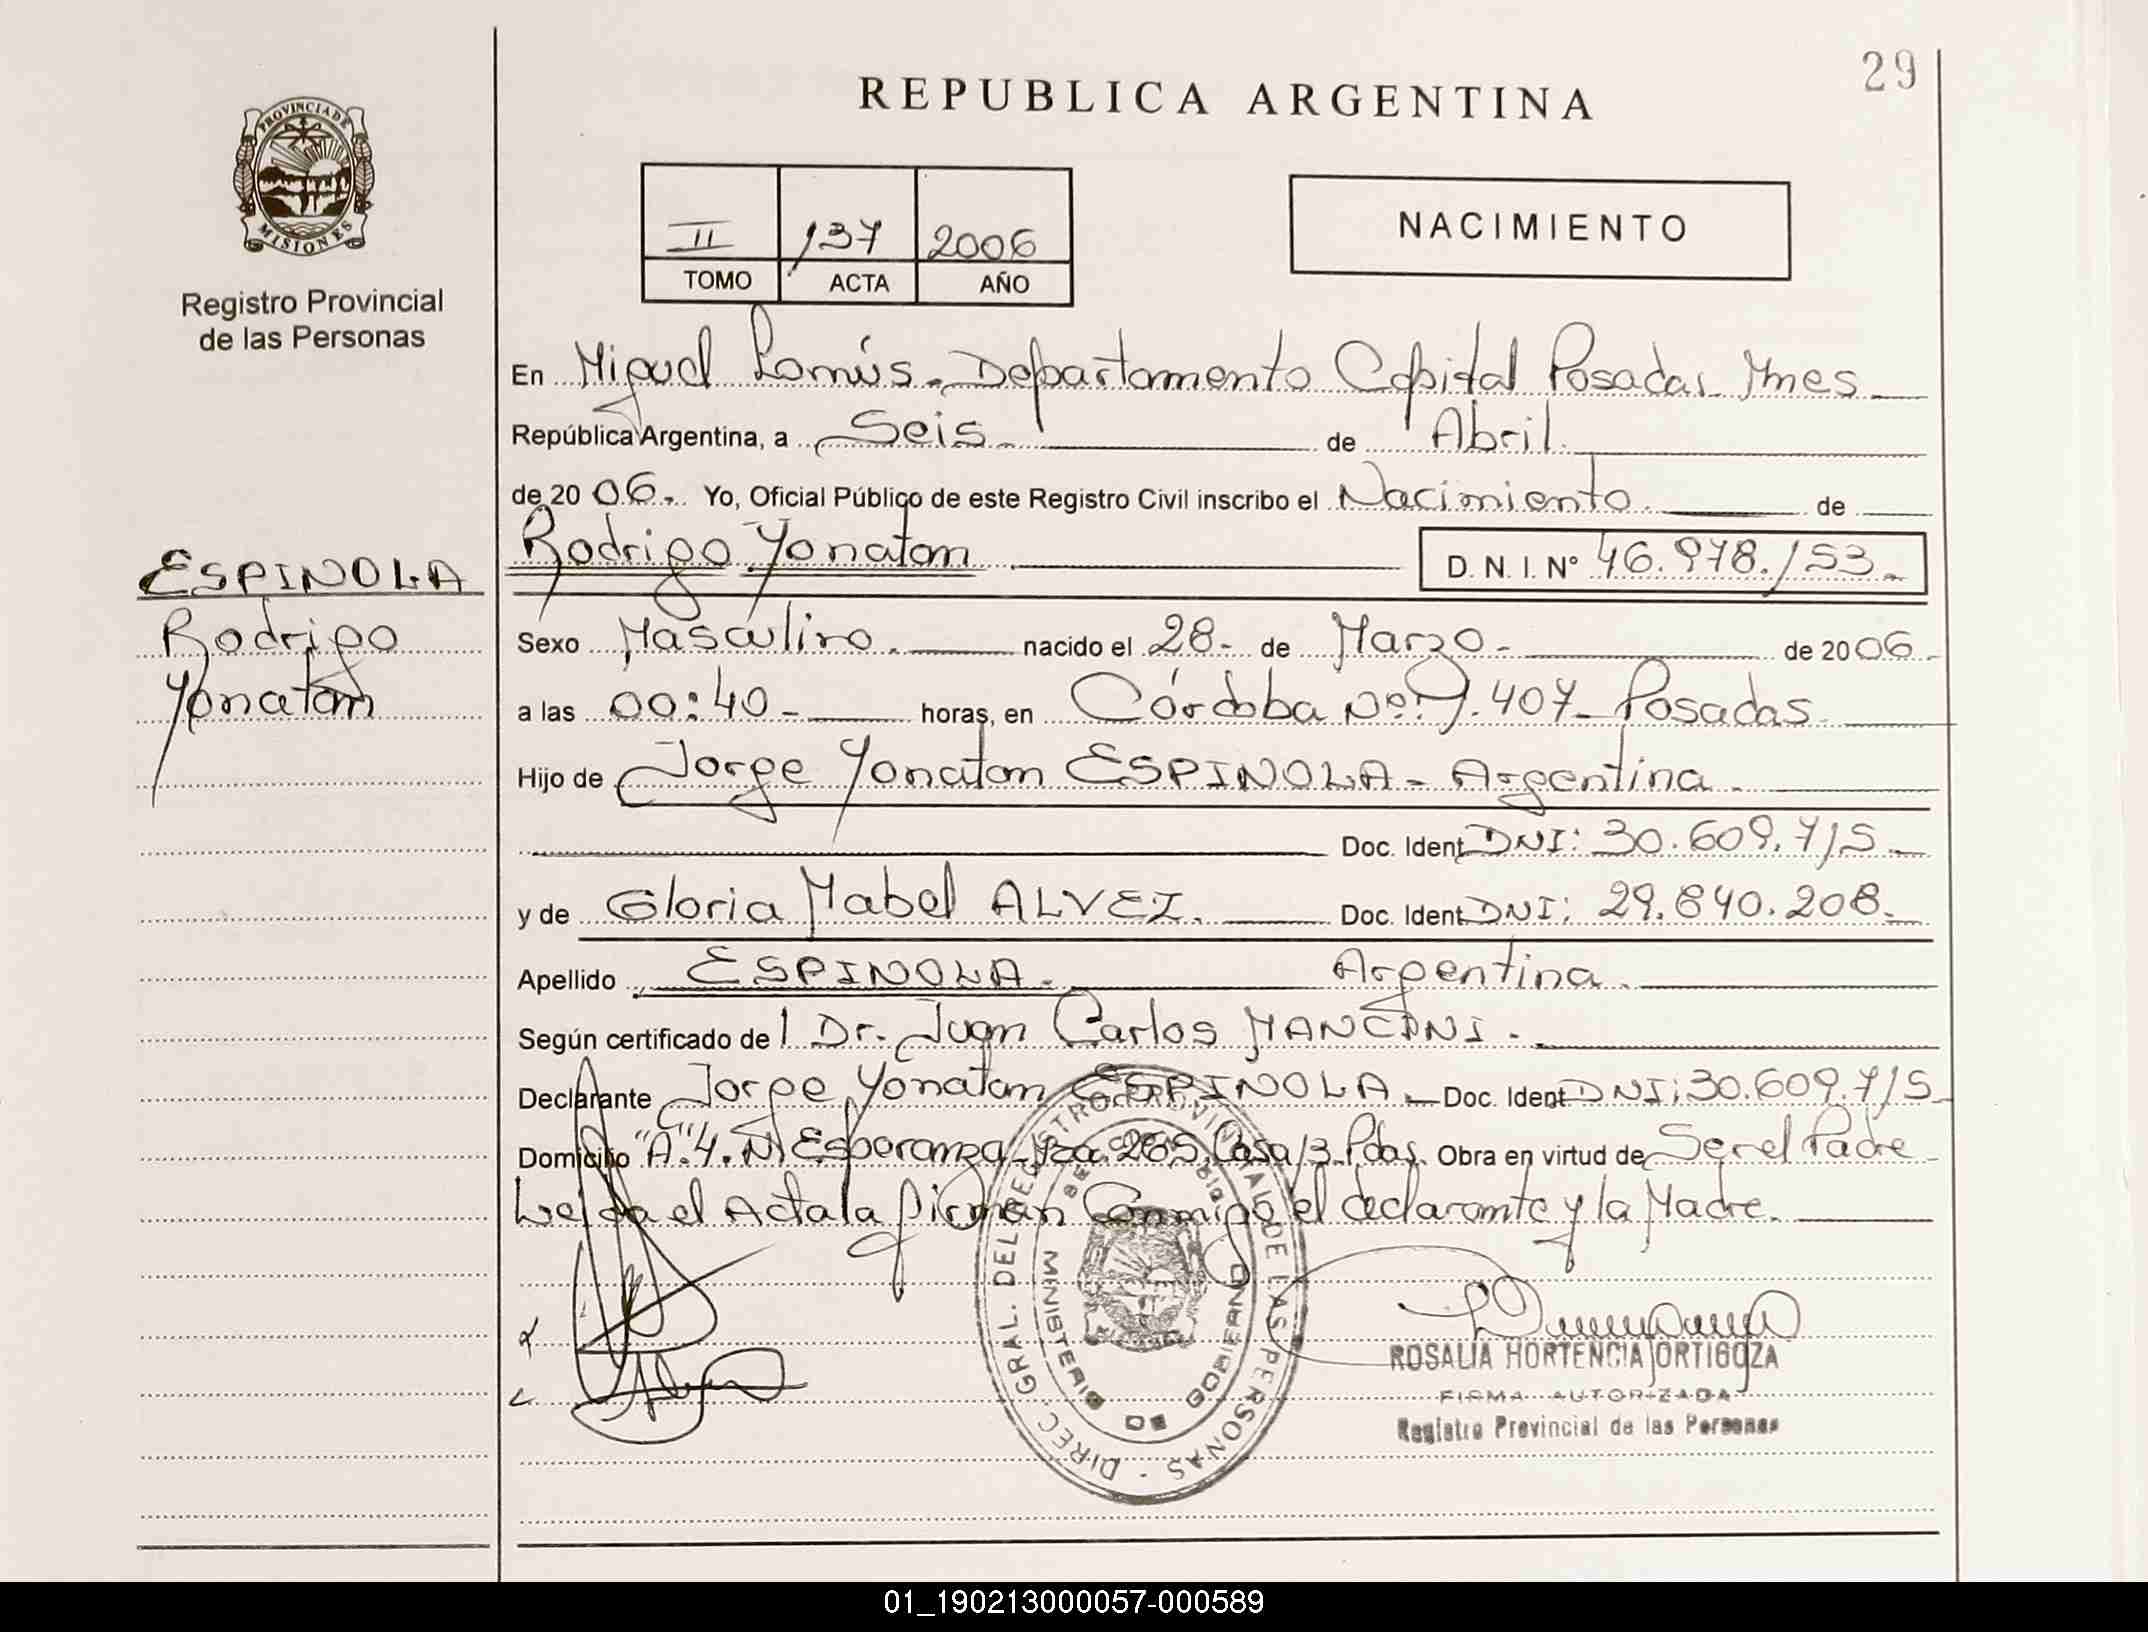 29
REPUBLICA ARGENTINA
PROVINCIA DE MISIONES
Registro Provincial
de las Personas
II 137 2006
TOMO ACTA AÑO
NACIMIENTO
En Miguel Lanús - Departamento Capital Posadas Mnes
República Argentina, a Seis de Abril
de 2006. Yo, Oficial Público de este Registro Civil inscribo el Nacimiento de
Rodrigo Yonatan D.N.I. Nº 46.978.153
ESPINOLA
Rodrigo
Yonatan
Sexo Masculino. nacido el 28 - de Marzo - de 2006
a las 00:40 - horas, en Córdoba Nº 407 - Posadas
Hijo de Jorge Yonatan ESPINOLA - Argentina
Doc. Ident DNI: 30.609.715
y de Gloria Mabel ALVEZ. Doc. Ident DNI: 29.840.208.
Apellido ESPINOLA. Argentina.
Según certificado de l Dr. Juan Carlos MANCINI.
Declarante Jorge Yonatan ESPINOLA - Doc. Ident DNI: 30.609.715
Domicilio "A" 4. N. Esperanza 265 Casa 13 Pdas. Obra en virtud de Ser el Padre
Leida el Acta la firman Conmigo el declarante y la Madre.
DIREC. GRAL. DEL REGISTRO PROVINCIAL DE LAS PERSONAS
MINISTERIO DE GOBIERNO
ROSALIA HORTENCIA ORTIGOZA
FIRMA AUTORIZADA
Registro Provincial de las Personas
01_190213000057-000589